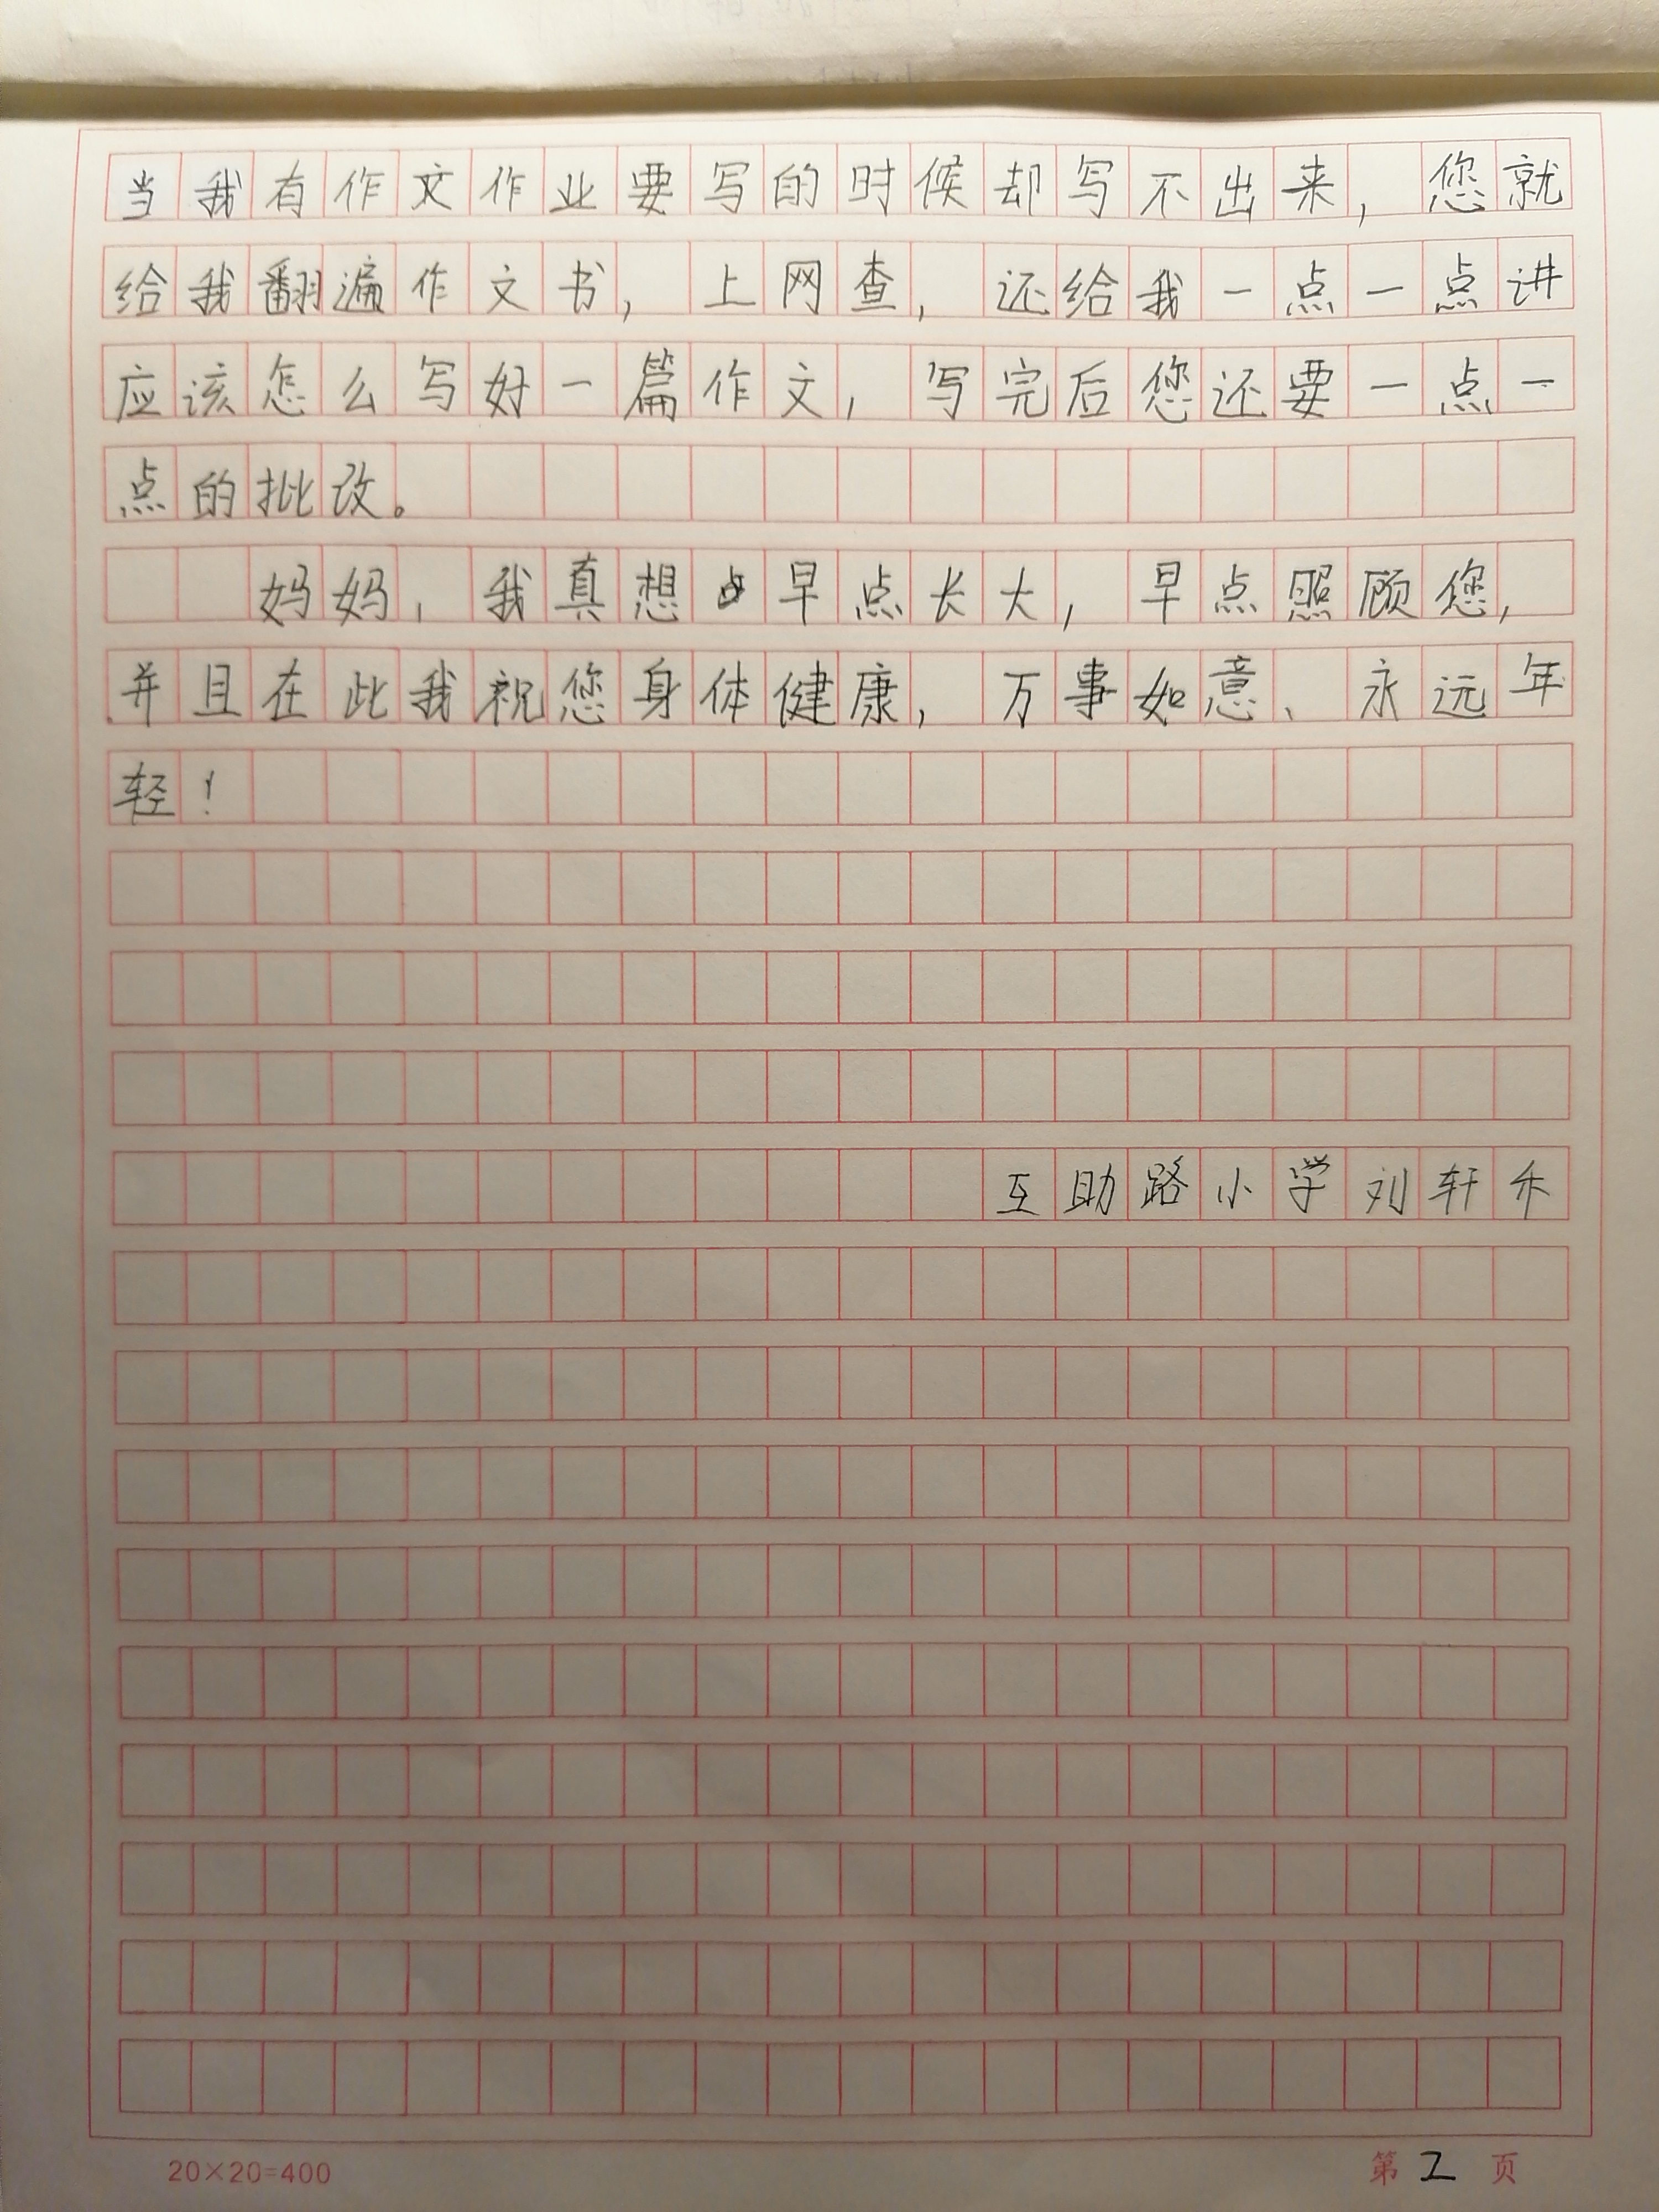 当我有作文作业要写的时候却写不出来，您就
给我翻遍作文书，上网查，还给我一点一点讲
应该怎么写好一篇作文，写完后您还要一点一
点的批改。
妈妈，我真想早点长大，早点照顾您，
并且在此我祝您身体健康，万事如意、永远年
轻！
互助路小学刘轩禾
20×20=400
第2页